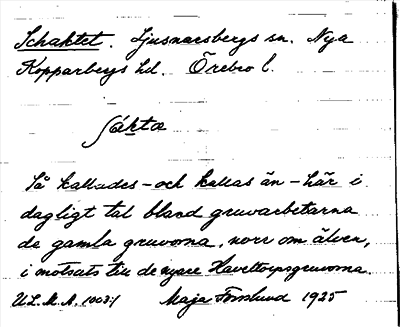 Schaktet. Ljusnarsbergs sn. Nya
Kopparbergs hd. Örebro l.
Så kallades – och kallas än – här i
dagligt tal bland gruvarbetarna
de gamla gruvorna, norr om älven,
i motsats till de nyare Haveltorpsgruvorna.
U.L.M.A. 1003:1 Maja Forsslund 1925